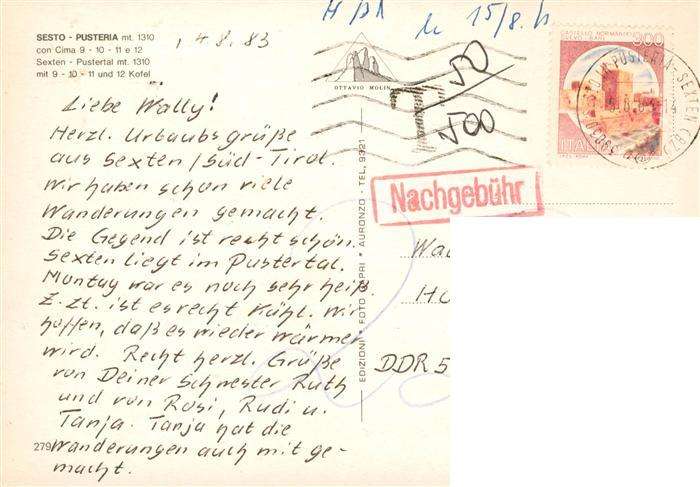 SESTO - PUSTERIA mt. 1310
con Cima 9 - 10 - 11 e 12
Sexten - Pustertal mt. 1310
mit 9 - 10 - 11 und 12 Kofel
4.8.83
Liebe Wally!
Herzl. Urlaubsgrüße
aus Sexten / Süd-Tirol.
Wir haben schon viele
Wanderungen gemacht.
Die Gegend ist recht schön.
Sexten liegt im Pustertal.
Montag war es noch sehr heiß
Z. Zt. ist es recht kühl. Wir
hoffen, daß es wieder wärmer
wird. Recht herzl. Grüße
von Deiner Schwester Ruth
und von Rosi, Rudi u.
Tanja. Tanja hat die
Wanderungen auch mit ge-
macht.
279
OTTAVIO MOLIN
EDIZIONI FOTO GAPRI * AURONZO - TEL. 9921
15/8.
T
50
500
CASTELLO NORMANNO
300
ITALIA
Nachgebühr
DDR 5